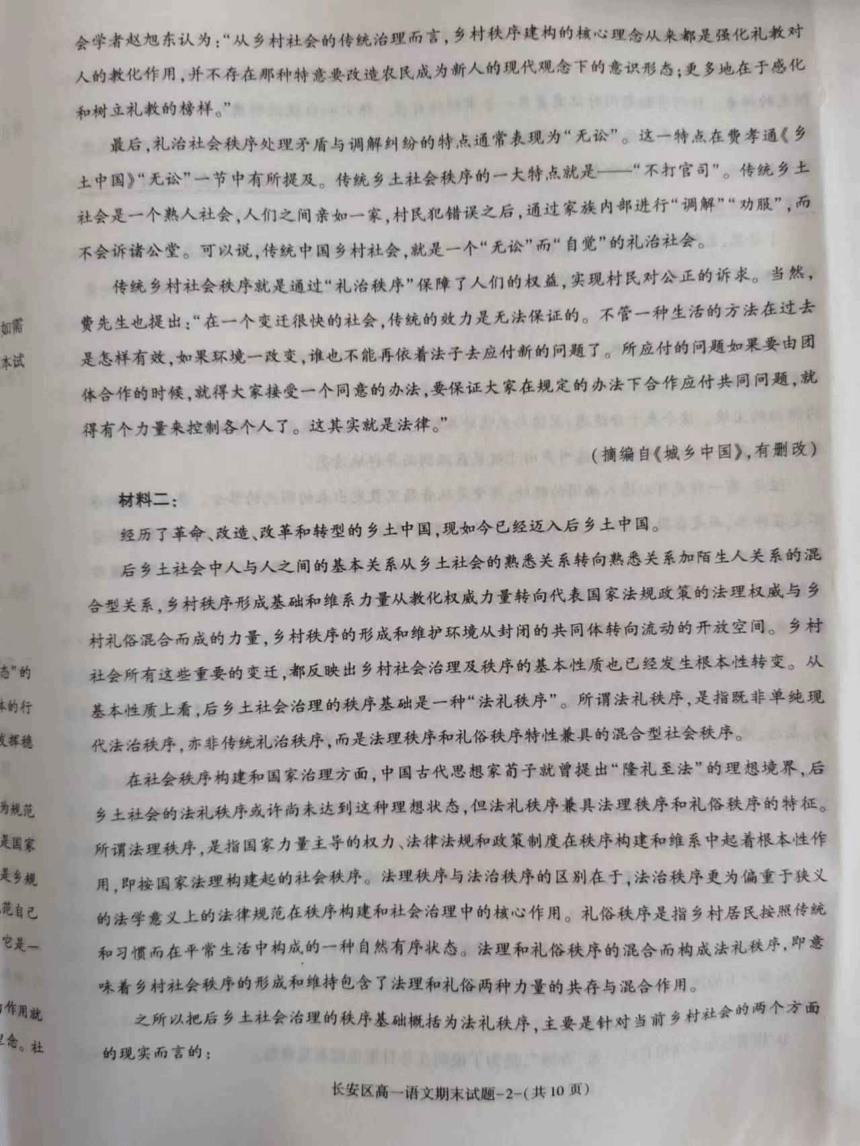 会学者赵旭东认为:“从乡村社会的传统治理而言,乡村秩序建构的核心理念从来都是强化礼教对
人的教化作用,并不存在那种特意要改造农民成为新人的现代观念下的意识形态;更多地在于感化
和树立礼教的榜样。”
最后,礼治社会秩序处理矛盾与调解纠纷的特点通常表现为“无讼”。这一特点在费孝通《乡
土中国》“无讼”一节中有所提及。传统乡土社会秩序的一大特点就是——“不打官司”。传统乡土
社会是一个熟人社会,人们之间亲如一家,村民犯错误之后,通过家族内部进行“调解”“劝服”,而
不会诉诸公堂。可以说,传统中国乡村社会,就是一个“无讼”而“自觉”的礼治社会。
传统乡村社会秩序就是通过“礼治秩序”保障了人们的权益,实现村民对公正的诉求。当然,
费先生也提出:“在一个变迁很快的社会,传统的效力是无法保证的。不管一种生活的方法在过去
是怎样有效,如果环境一改变,谁也不能再依着法子去应付新的问题了。所应付的问题如果要由团
体合作的时候,就得大家接受一个同意的办法,要保证大家在规定的办法下合作应付共同问题,就
得有个力量来控制各个人了。这其实就是法律。”
(摘编自《城乡中国》,有删改)
材料二:
经历了革命、改造、改革和转型的乡土中国,现如今已经迈入后乡土中国。
后乡土社会中人与人之间的基本关系从乡土社会的熟悉关系转向熟悉关系加陌生人关系的混
合型关系,乡村秩序形成基础和维系力量从教化权威力量转向代表国家法规政策的法理权威与乡
村礼俗混合而成的力量,乡村秩序的形成和维护环境从封闭的共同体转向流动的开放空间。乡村
社会所有这些重要的变迁,都反映出乡村社会治理及秩序的基本性质也已经发生根本性转变。从
基本性质上看,后乡土社会治理的秩序基础是一种“法礼秩序”。所谓法礼秩序,是指既非单纯现
代法治秩序,亦非传统礼治秩序,而是法理秩序和礼俗秩序特性兼具的混合型社会秩序。
在社会秩序构建和国家治理方面,中国古代思想家荀子就曾提出“隆礼至法”的理想境界,后
乡土社会的法礼秩序或许尚未达到这种理想状态,但法礼秩序兼具法理秩序和礼俗秩序的特征。
所谓法理秩序,是指国家力量主导的权力、法律法规和政策制度在秩序构建和维系中起着根本性作
用,即按国家法理构建起的社会秩序。法理秩序与法治秩序的区别在于,法治秩序更为偏重于狭义
的法学意义上的法律规范在秩序构建和社会治理中的核心作用。礼俗秩序是指乡村居民按照传统
和习惯而在平常生活中构成的一种自然有序状态。法理和礼俗秩序的混合而构成法礼秩序,即意
味着乡村社会秩序的形成和维持包含了法理和礼俗两种力量的共存与混合作用。
之所以把后乡土社会治理的秩序基础概括为法礼秩序,主要是针对当前乡村社会的两个方面
的现实而言的:
长安区高一语文期末试题-2-(共10页)
如需
本试
态”的
体的行
发挥稳
为规范
是国家
是乡规
范自己
它是一
作用就
念。社